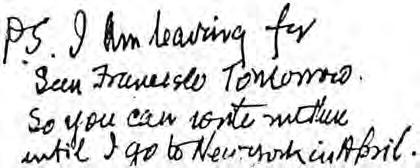 P.S. I Am leaving for
San Francisco Tomorrow.
So you can write me there
until I go to New-york in April